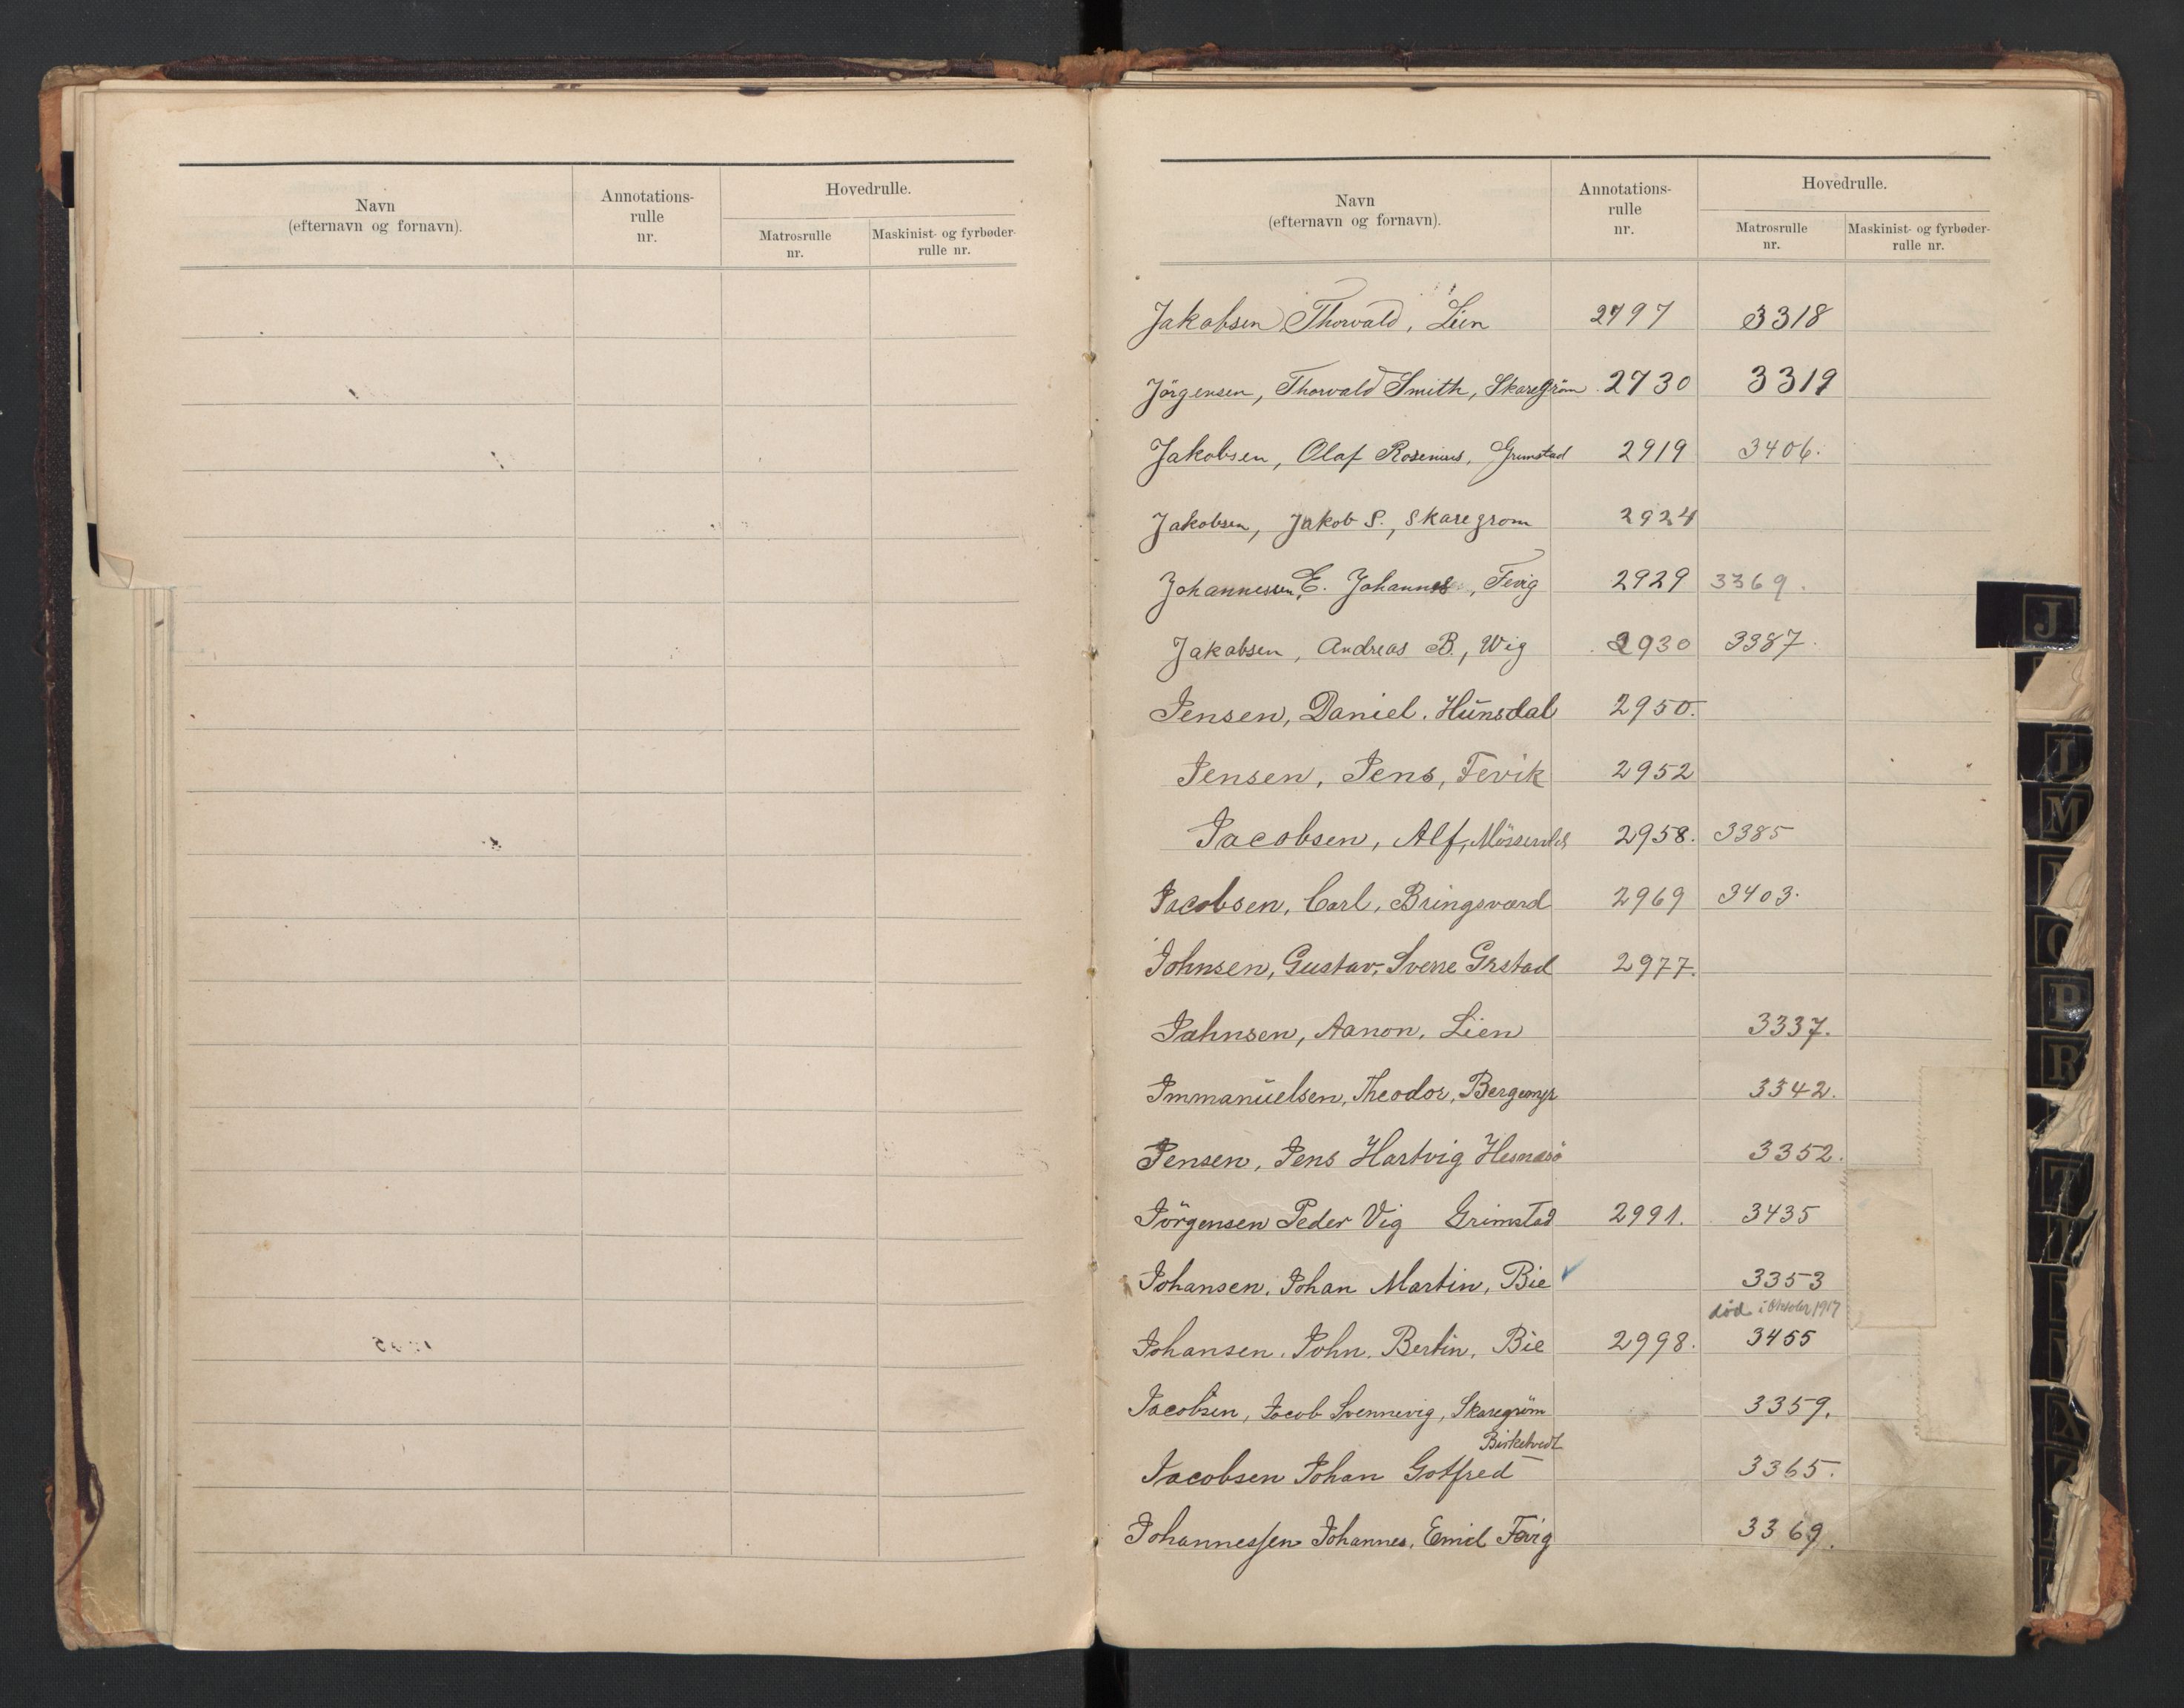 Navn
(efternavn og fornavn).
Annotations-
rulle
nr.
Hovedrulle.
Matrosrulle
nr.
Maskinist- og fyrbøder-
rulle nr.
Navn
(efternavn og fornavn).
Annotations-
rulle
nr.
Hovedrulle.
Matrosrulle
nr.
Maskinist- og fyrbøder-
rulle nr.
Jakobsen, Thorvald, Lien 2797 3318
Jörgensen, Thorvald Smith, Skaregröm 2730 3319
Jakobsen, Olaf Rosenius, Grimstad 2919 3406.
Jakobsen, Jakob S., Skaregrom 2924
Johannessen, E. Johannes, Fevig 2929 3369.
Jakobsen, Andreas B., Wig 2930 3387.
Jensen, Daniel. Hünsdal 2950.
Jensen, Jens, Fevik 2952
Jacobsen, Alf, 2958. 3385
Jacobsen, Carl, Bringsværd 2969 3403.
Johnsen, Gustav, Sverre Grstad 2977.
Johnsen, Aanon, Lien 3337.
Immanüelsen, Theodor, Bergemyr 3342.
Jensen, Jens Hartvig Hesnesö 3352.
Jörgensen Peder Vig Grimstad 2991. 3435
Johansen, Johan Martin, Bie ✓ 3353
død i Oktober 1917
Johansen. John. Bertin, Bie 2998. 3455
Jacobsen, Jacob Svennevig, Skaregröm 3359.
Birketvedt
Jacobsen Johan Gotfred 3365.
Johannessen Johannes, Emil Fevig 3369.
J
I
M
P
R
T